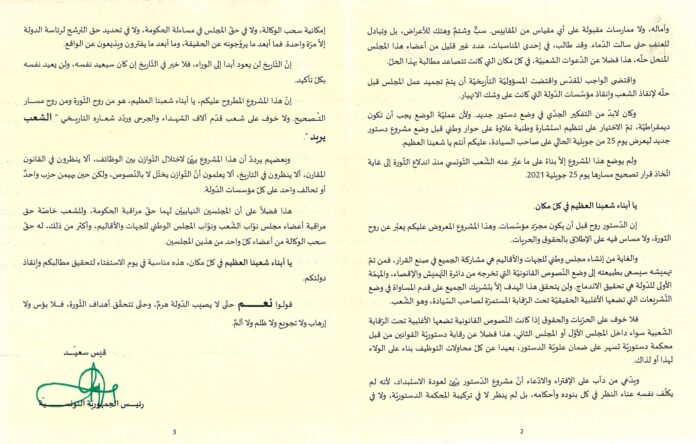 وآماله، ولا ممارسات مقبولة على أي مقياس من المقاييس. سبٌّ وشتمٌ وهتك للأعراض، بل وتبادل
للعنف حتى سالت الدّماء. وقد طالب، في إحدى المناسبات، عدد غير قليل من أعضاء هذا المجلس
المنحل حلّه، هذا فضلا عن الدعوات الشعبيّة، في كلّ مكان التي كانت تتصاعد مطالبة بهذا الحلّ.
واقتضى الواجب المقدّس واقتضت المسؤوليّة التأريخيّة أن يتمّ تجميد عمل المجلس قبل
حلّه لإنقاذ الشعب وإنقاذ مؤسّسات الدّولة التي كانت على وشك الانهيار.
وكان لابدّ من التفكير الجدّي في وضع دستور جديد. ولأن عمليّة الوضع يجب أن تكون
ديمقراطيّة، تمّ الاختيار على تنظيم استشارة وطنية علاوة على حوار وطني قبل وضع مشروع دستور
جديد ليعرض يوم 25 من جويلية الحالي على صاحب السيادة، عليكم أنتم يا شعبنا العظيم.
ولم يوضع هذا المشروع إلاّ بناء على ما عبّر عنه الشّعب التّونسي منذ اندلاع الثّورة إلى غاية
اتّخاذ قرار تصحيح مسارها يوم 25 جويلية 2021.
يا أبناء شعبنا العظيم في كلّ مكان،
إن الدّستور روح قبل أن يكون مجرّد مؤسّسات. وهذا المشروع المعروض عليكم يعبّر عن روح
الثورة، ولا مساس فيه على الإطلاق بالحقوق والحريات.
والغاية من إنشاء مجلس وطني للجهات والأقاليم هي مشاركة الجميع في صنع القرار، فمن تمّ
تهميشه سيسعى بطبيعته إلى وضع النّصوص القانونيّة التي تخرجه من دائرة التهميش والإقصاء، والمهمّة
الأولى للدّولة هي تحقيق الاندماج. ولن يتحقق هذا الهدف إلاّ بتشريك الجميع على قدم المساواة في وضع
التّشريعات التي تضعها الأغلبية الحقيقيّة تحت الرّقابة المستمرّة لصاحب السّيادة، وهو الشّعب.
فلا خوف على الحرّيات والحقوق إذا كانت النّصوص القانونية تضعها الأغلبية تحت الرّقابة
الشّعبية سواء داخل المجلس الأوّل أو المجلس الثاني، هذا فضلا عن رقابة دستوريّة القوانين من قبل
محكمة دستوريّة تسهر على ضمان علويّة الدستور، بعيدا عن كلّ محاولات التوظيف بناء على الولاء
لهذا أو لذاك.
ويدّعي من دأب على الافتراء والادّعاء أنّ مشروع الدّستور يهيّئ لعودة الاستبداد، لأنه لم
يكلّف نفسه عناء النظر في كل بنوده وأحكامه، بل لم ينظر لا في تركيبة المحكمة الدستوريّة، ولا في
2
إمكانية سحب الوكالة، ولا في حقّ المجلس في مساءلة الحكومة، ولا في تحديد حق الترشح لرئاسة الدولة
إلاّ مرّة واحدة. فما أبعد ما يروّجونه عن الحقيقة، وما أبعد ما يفترون ويذيعون عن الواقع.
إنّ التّاريخ لن يعود أبدا إلى الوراء، فلا خير في التّاريخ إن كان سيعيد نفسه، ولن يعيد نفسه
بكلّ تأكيد.
إنّ هذا المشروع المطروح عليكم، يا أبناء شعبنا العظيم، هو من روح الثّورة ومن روح مسار
التّصحيح. ولا خوف على شعب قدّم آلاف الشهداء والجرحى وردّد شعاره التاريخي " الشعب
يريد ".
وبعضهم يردّد أن هذا المشروع يهيّئ لاختلال التّوازن بين الوظائف، ألا ينظرون في القانون
المقارن، ألا ينظرون في التاريخ، ألا يعلمون أنّ التّوازن يختلّ لا بالنّصوص، ولكن حين يهيمن حزب واحد
أو تحالف واحد على كلّ مؤسسات الدّولة.
هذا فضلاً على أن المجلسين النيابيّين لهما حقّ مراقبة الحكومة، وللشعب خاصّة حق
مراقبة أعضاء مجلس نوّاب الشّعب ونوّاب المجلس الوطني للجهات والأقاليم، وأكثر من ذلك، له حقّ
سحب الوكالة من أعضاء كلّ واحد من هذين المجلسين.
يا أبناء شعبنا العظيم في كلّ مكان، هذه مناسبة في يوم الاستفتاء لتحقيق مطالبكم وإنقاذ
دولتكم.
قولوا نعـــم حتى لا يصيب الدّولة هرمٌ، وحتى تتحقّق أهداف الثّورة، فلا بؤس ولا
إرهاب ولا تجويع ولا ظلم ولا ألمٌ.
قيس سعيّـد
رئيـس الجمهوريّة التونسيـة
3